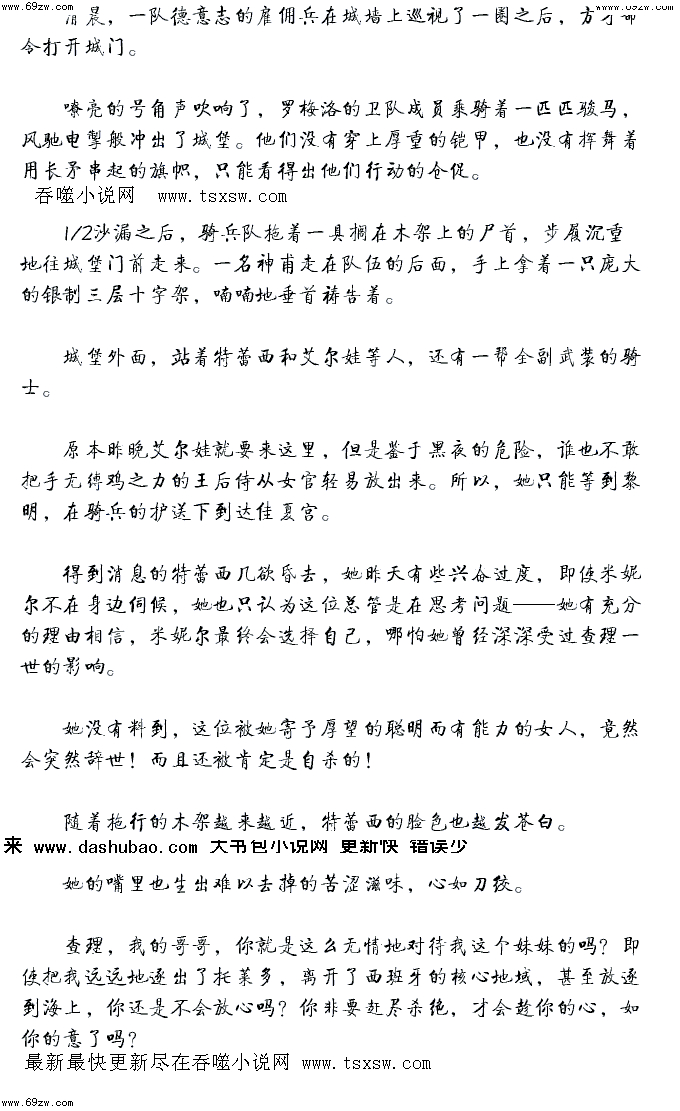 www.69zw.com www.69zw.com
清晨，一队德意志的雇佣兵在城墙上巡视了一圈之后，方才命
令打开城门。
嘹亮的号角声吹响了，罗梅洛的卫队成员乘骑着一匹匹骏马，
风驰电掣般冲出了城堡。他们没有穿上厚重的铠甲，也没有挥舞着
用长矛串起的旗帜，只能看得出他们行动的仓促。
吞噬小说网 www.tsxsw.com
1/2沙漏之后，骑兵队拖着一具搁在木架上的尸首，步履沉重
地往城堡门前走来。一名神甫走在队伍的后面，手上拿着一只庞大
的银制三层十字架，喃喃地垂首祷告着。
城堡外面，站着特蕾西和艾尔娃等人，还有一帮全副武装的骑
士。
原本昨晚艾尔娃就要来这里，但是鉴于黑夜的危险，谁也不敢
把手无缚鸡之力的王后侍从女官轻易放出来。所以，她只能等到黎
明，在骑兵的护送下到达佳夏宫。
得到消息的特蕾西几欲昏去，她昨天有些兴奋过度，即使米妮
尔不在身边伺候，她也只认为这位总管是在思考问题——她有充分
的理由相信，米妮尔最终会选择自己，哪怕她曾经深深受过查理一
世的影响。
她没有料到，这位被她寄予厚望的聪明而有能力的女人，竟然
会突然辞世！而且还被肯定是自杀的！
随着拖行的木架越来越近，特蕾西的脸色也越发苍白。
来 www.dashubao.com 大书包小说网 更新快 错误少
她的嘴里也生出难以去掉的苦涩滋味，心如刀绞。
查理，我的哥哥，你就是这么无情地对待我这个妹妹的吗？即
使把我远远地逐出了托莱多，离开了西班牙的核心地域，甚至放逐
到海上，你还是不会放心吗？你非要赶尽杀绝，才会趁你的心，如
你的意了吗？
最新最快更新尽在吞噬小说网 www.tsxsw.com
www.69zw.com